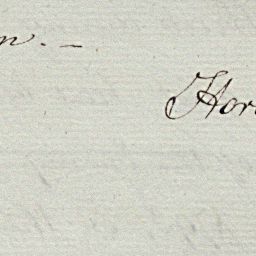 n. —
Hor